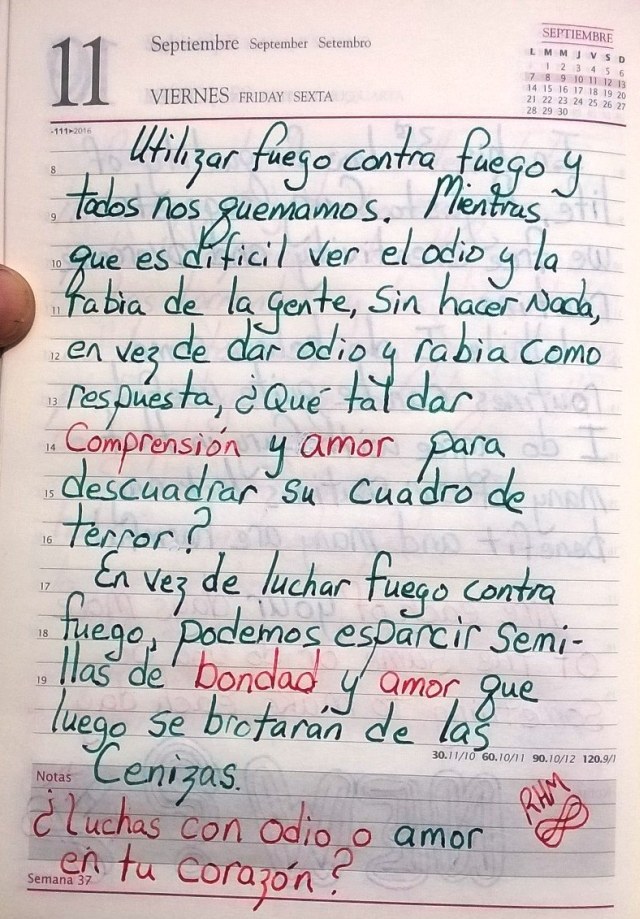 11
Septiembre September Setembro
VIERNES FRIDAY SEXTA
SEPTIEMBRE
L M M J V S D
1 2 3 4 5 6
7 8 9 10 11 12 13
14 15 16 17 18 19 20
21 22 23 24 25 26 27
28 29 30
-111▸2016
Utilizar fuego contra fuego y
8
todos nos quemamos. Mientras
9
que es díficil ver el odio y la
10
rabia de la gente, sin hacer nada,
11
en vez de dar odio y rabia como
12
respuesta, ¿Qué tal dar
13
Comprensión y amor para
14
descuadrar su cuadro de
15
terror?
16
En vez de luchar fuego contra
17
fuego, podemos esparcir semi-
18
llas de bondad y amor que
19
luego se brotarán de las
30.11/10 60.10/11 90.10/12 120.9/1
Notas
Cenizas.
RHM
¿Luchas con odio o amor
en tu corazón?
Semana 37